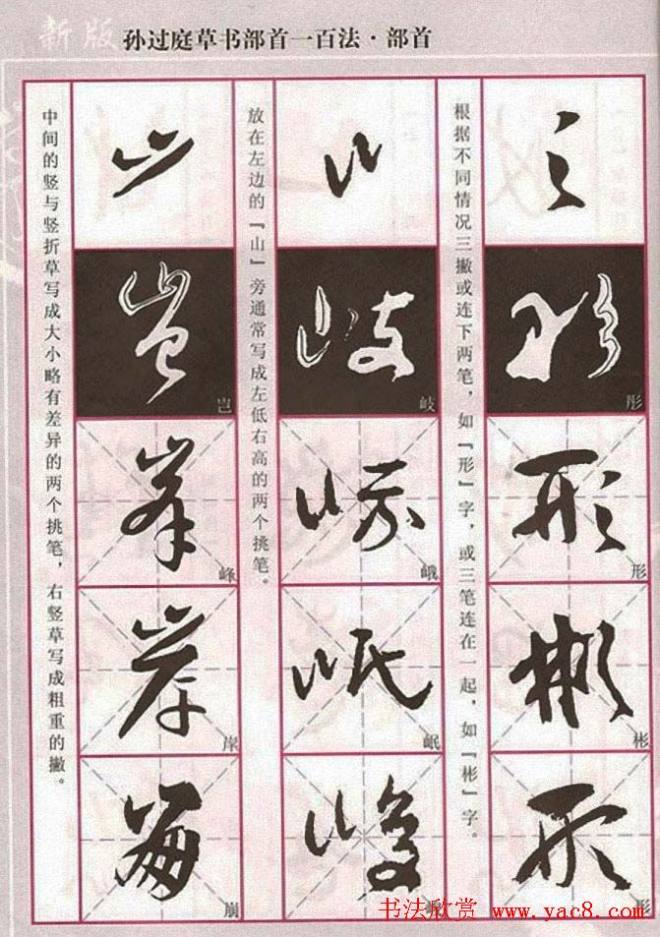 新版 孙过庭草书部首一百法·部首
根据不同情况三撇或连下两笔，如『形』字，或三笔连在一起，如『彬』字。
彤
形
彬
形
放在左边的『山』旁通常写成左低右高的两个挑笔。
岐
峨
岷
中间的竖与竖折草写成大小略有差异的两个挑笔，右竖草写成粗重的撇。
岂
峰
岸
崩
书法欣赏 www.yac8.com